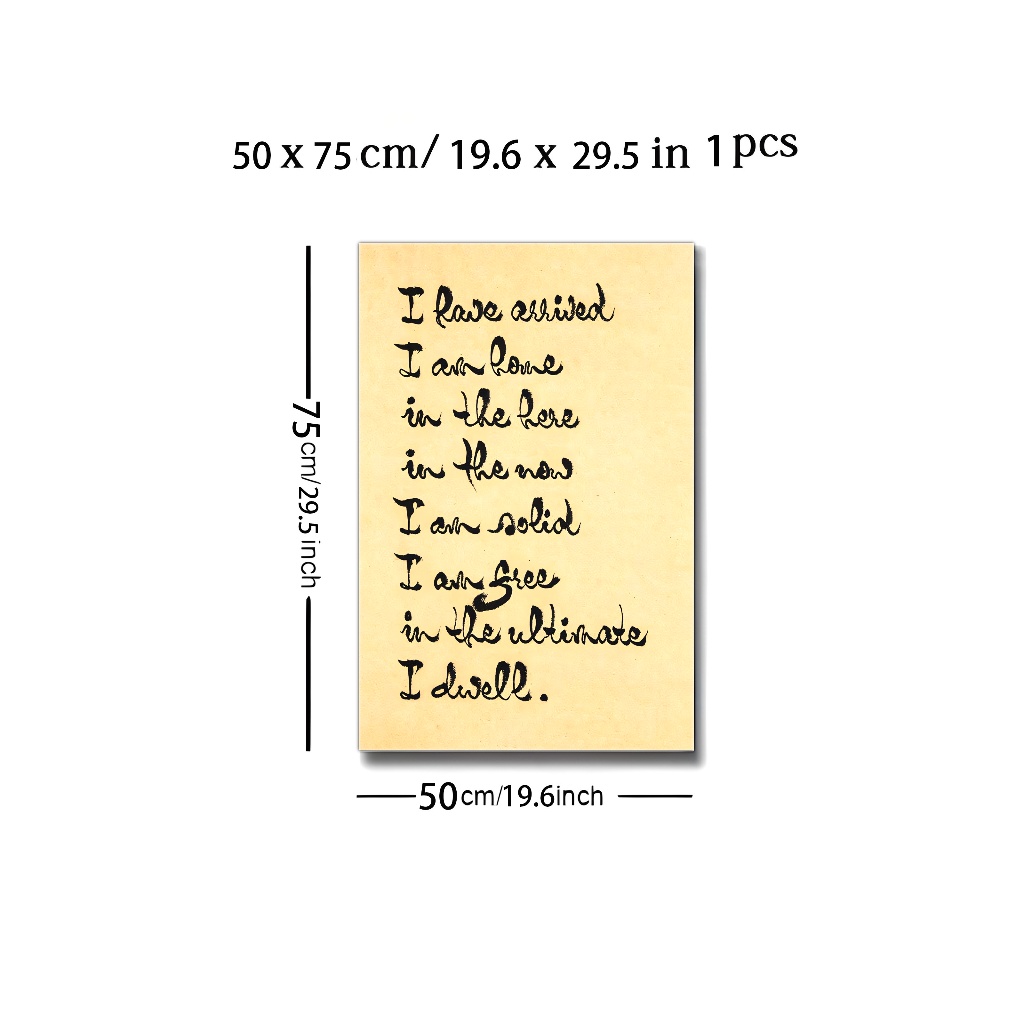 50 x 75 cm/ 19.6 x 29.5 in 1 pcs
75cm/29.5inch
I have arrived
I am home
in the here
in the now
I am solid
I am free
in the ultimate
I dwell.
50cm/19.6inch